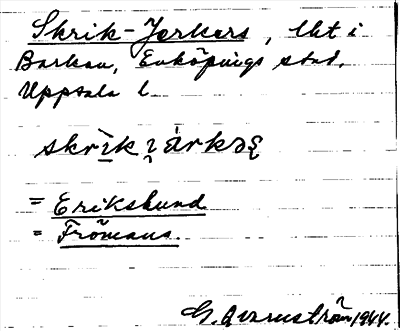 Skrik-Jerkers, lht i
Barkan, Enköpings stad.
Uppsala l
skrik järkəʂ
= Erikslund
= Frömans
E. Qvarnström 1944.